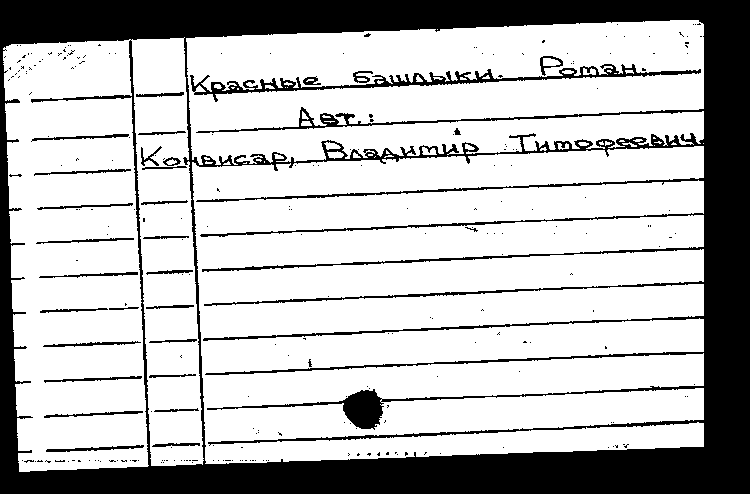 Красные башлыки. Роман.
Авт.:
Конвисар, Владимир Тимофеевич.